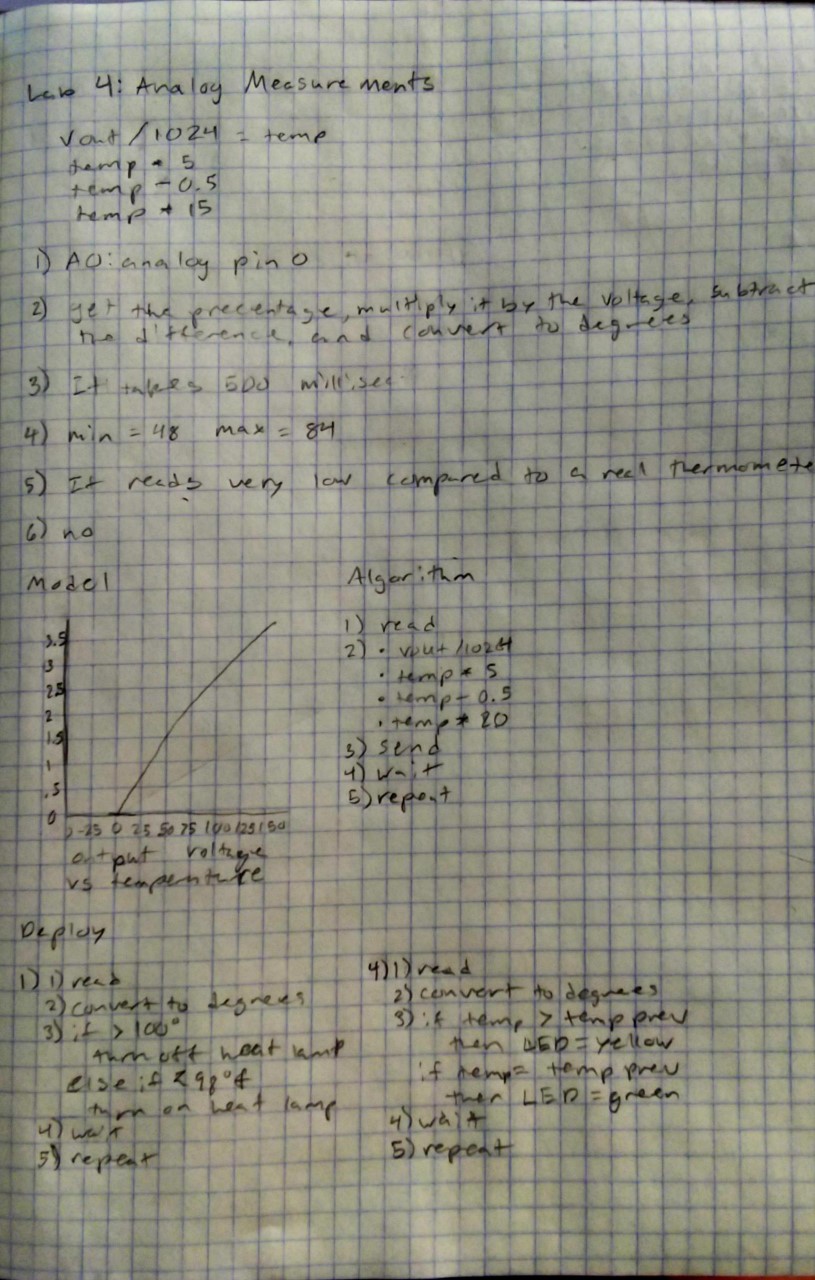 Lab 4: Analog Measurements
Vout /1024 = temp
temp * 5
temp - 0.5
temp * 15
1) A0: analog pin 0
2) get the precentage, multiply it by the voltage, subtract
the difference, and convert to degrees
3) It takes 500 millisec
4) min = 48 max = 84
5) It reads very low compared to a real thermomete
6) no
Model
3.5
3
2.5
2
1.5
1
.5
0
-25 0 25 50 75 100 125 150
output voltage
vs temperature
Algorithm
1) read
2) • vout /1024
• temp * 5
• temp - 0.5
• temp * 20
3) send
4) wait
5) repeat
Deploy
1) 1) read
2) convert to degrees
3) if > 100°
turn off heat lamp
else if < 98° f
turn on heat lamp
4) wait
5) repeat
4) 1) read
2) convert to degrees
3) if temp > temp prev
then LED = yellow
if temp = temp prev
then LED = green
4) wait
5) repeat